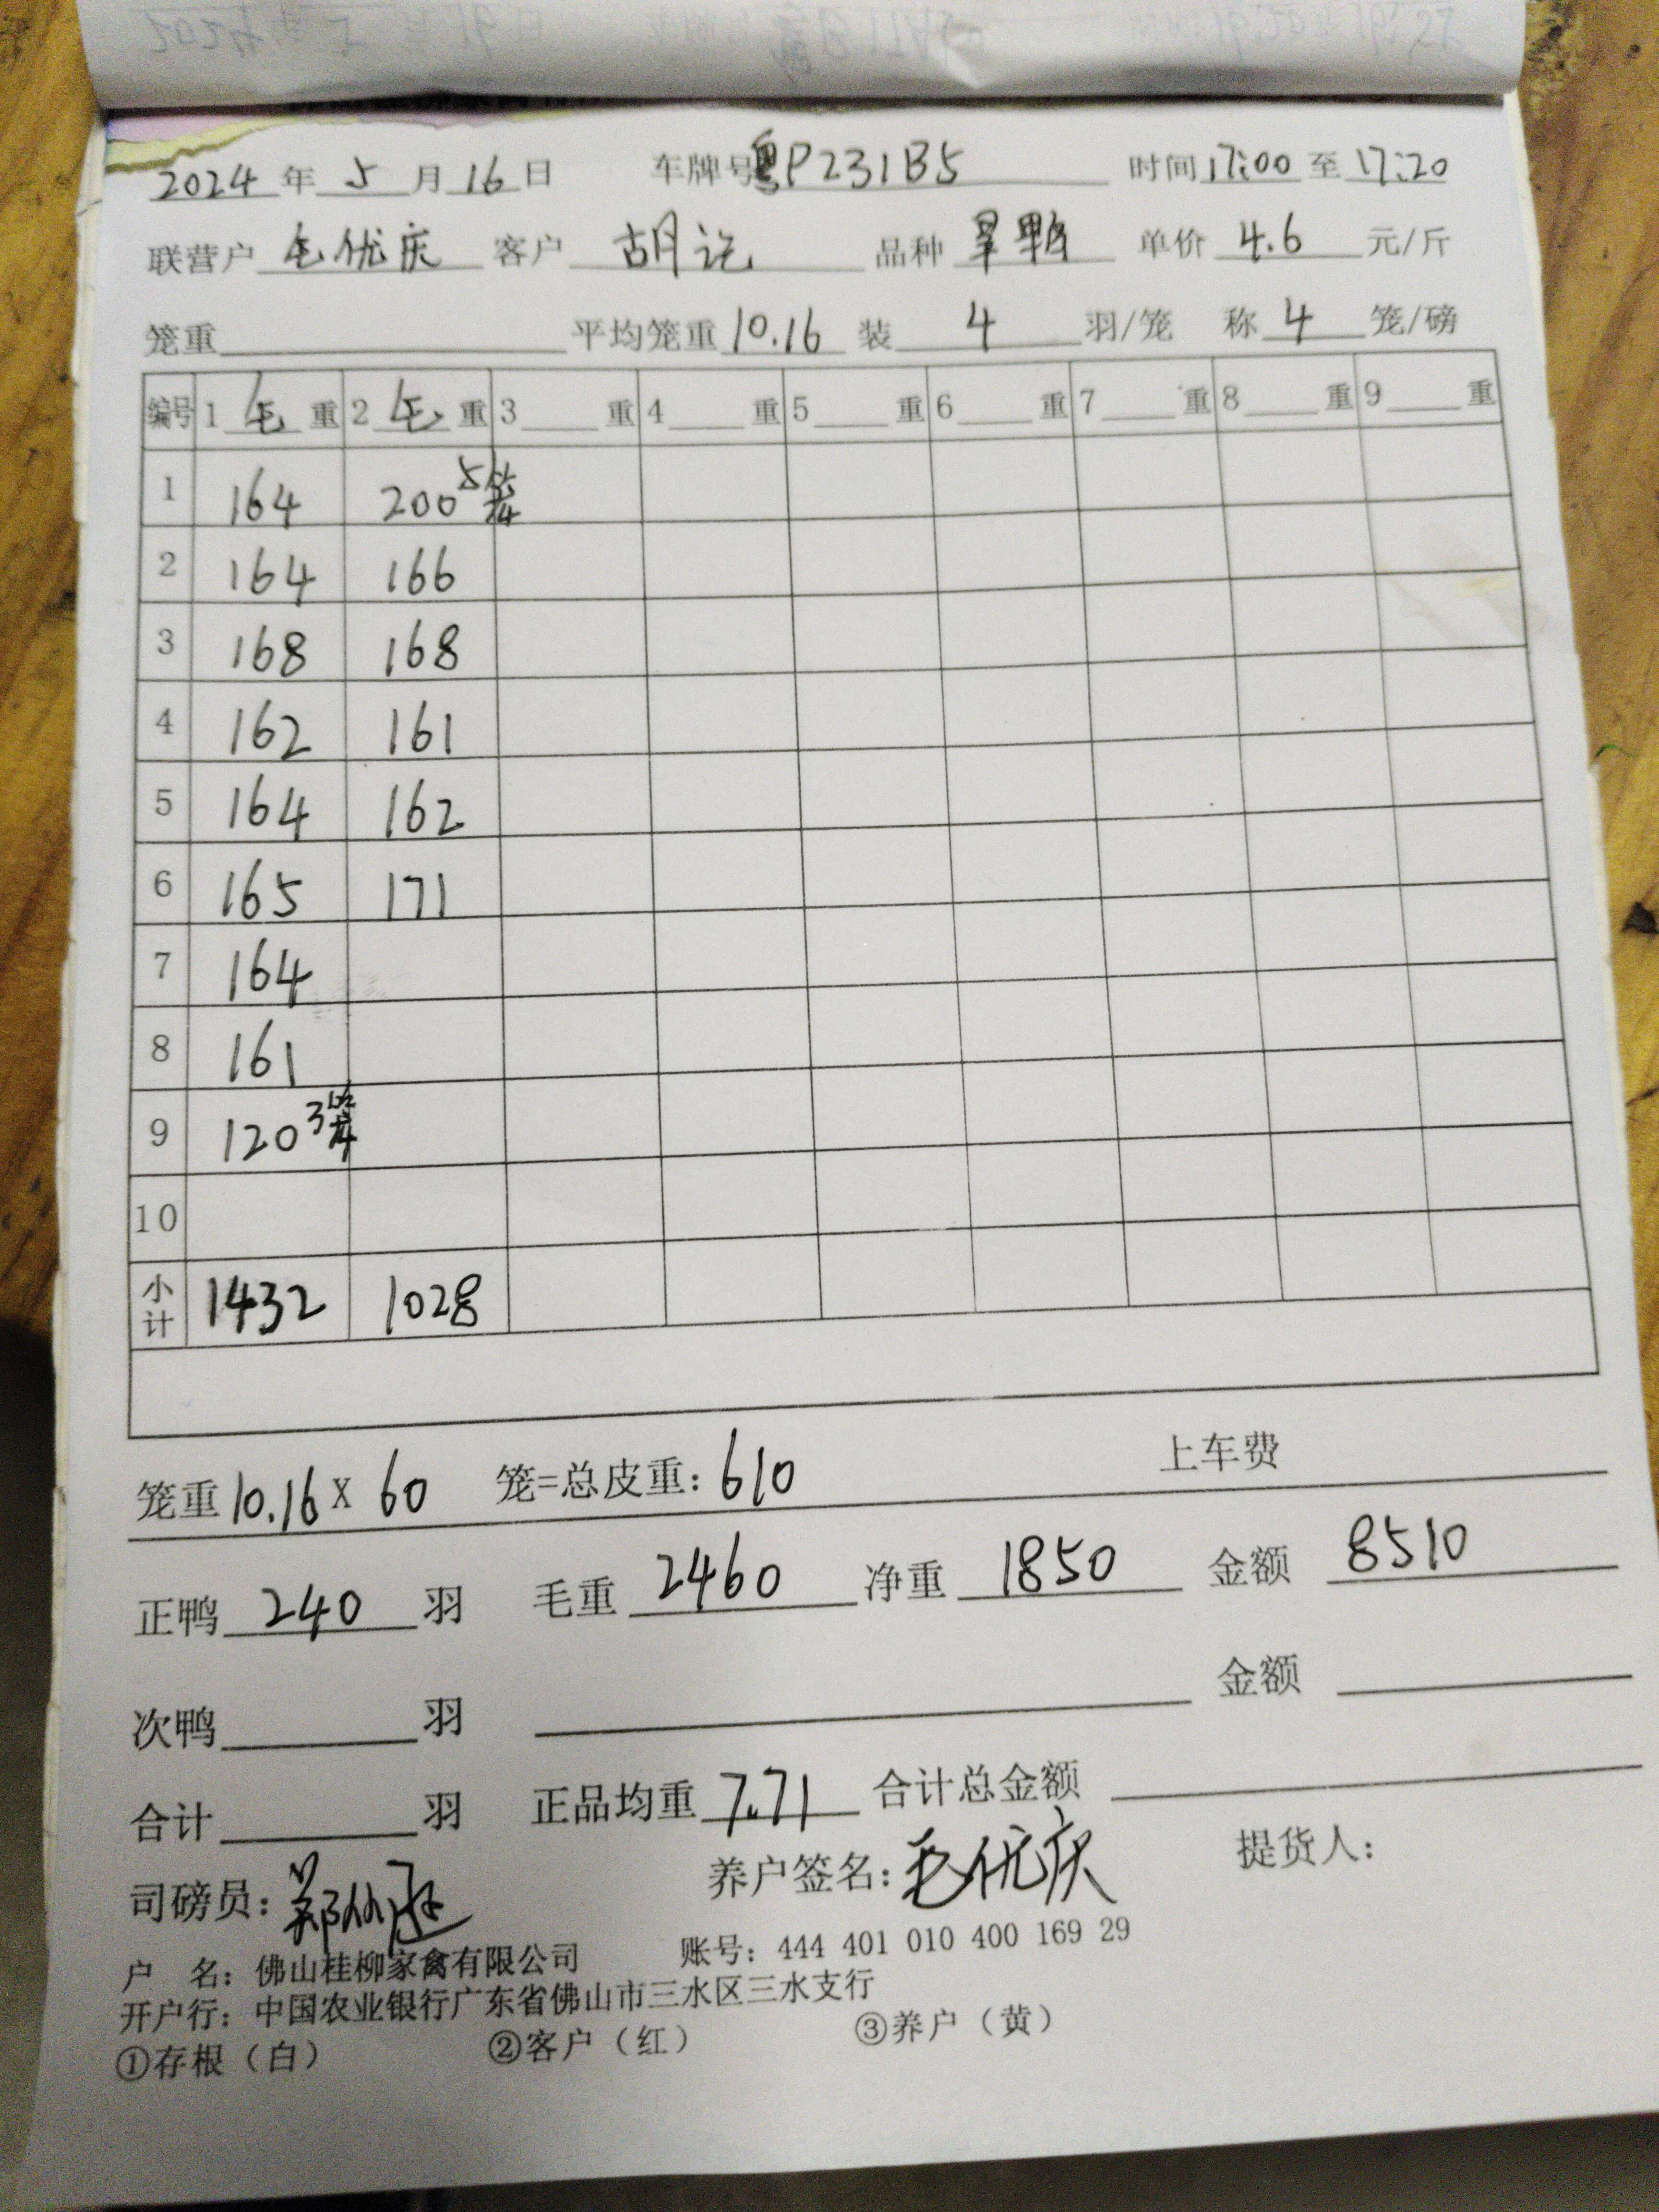 2024年5月16日 车牌号粤P231B5 时间17:00至17:20
联营户 毛优庆 客户 胡记 品种 旱鸭 单价 4.6 元/斤
笼重 平均笼重10.16 装 4 羽/笼 称 4 笼/磅
编号 1 毛 重 2 毛 重 3 重 4 重 5 重 6 重 7 重 8 重 9 重
1 164 200 5笼
2 164 166
3 168 168
4 162 161
5 164 162
6 165 171
7 164
8 161
9 120 3笼
10
小计 1432 1028
笼重10.16 X 60 笼=总皮重：610 上车费
正鸭 240 羽 毛重 2460 净重 1850 金额 8510
次鸭 羽 金额
合计 羽 正品均重 7.71 合计总金额
司磅员： 养户签名：毛优庆 提货人：
户 名：佛山桂柳家禽有限公司 账号：444 401 010 400 169 29
开户行：中国农业银行广东省佛山市三水区三水支行
①存根（白） ②客户（红） ③养户（黄）